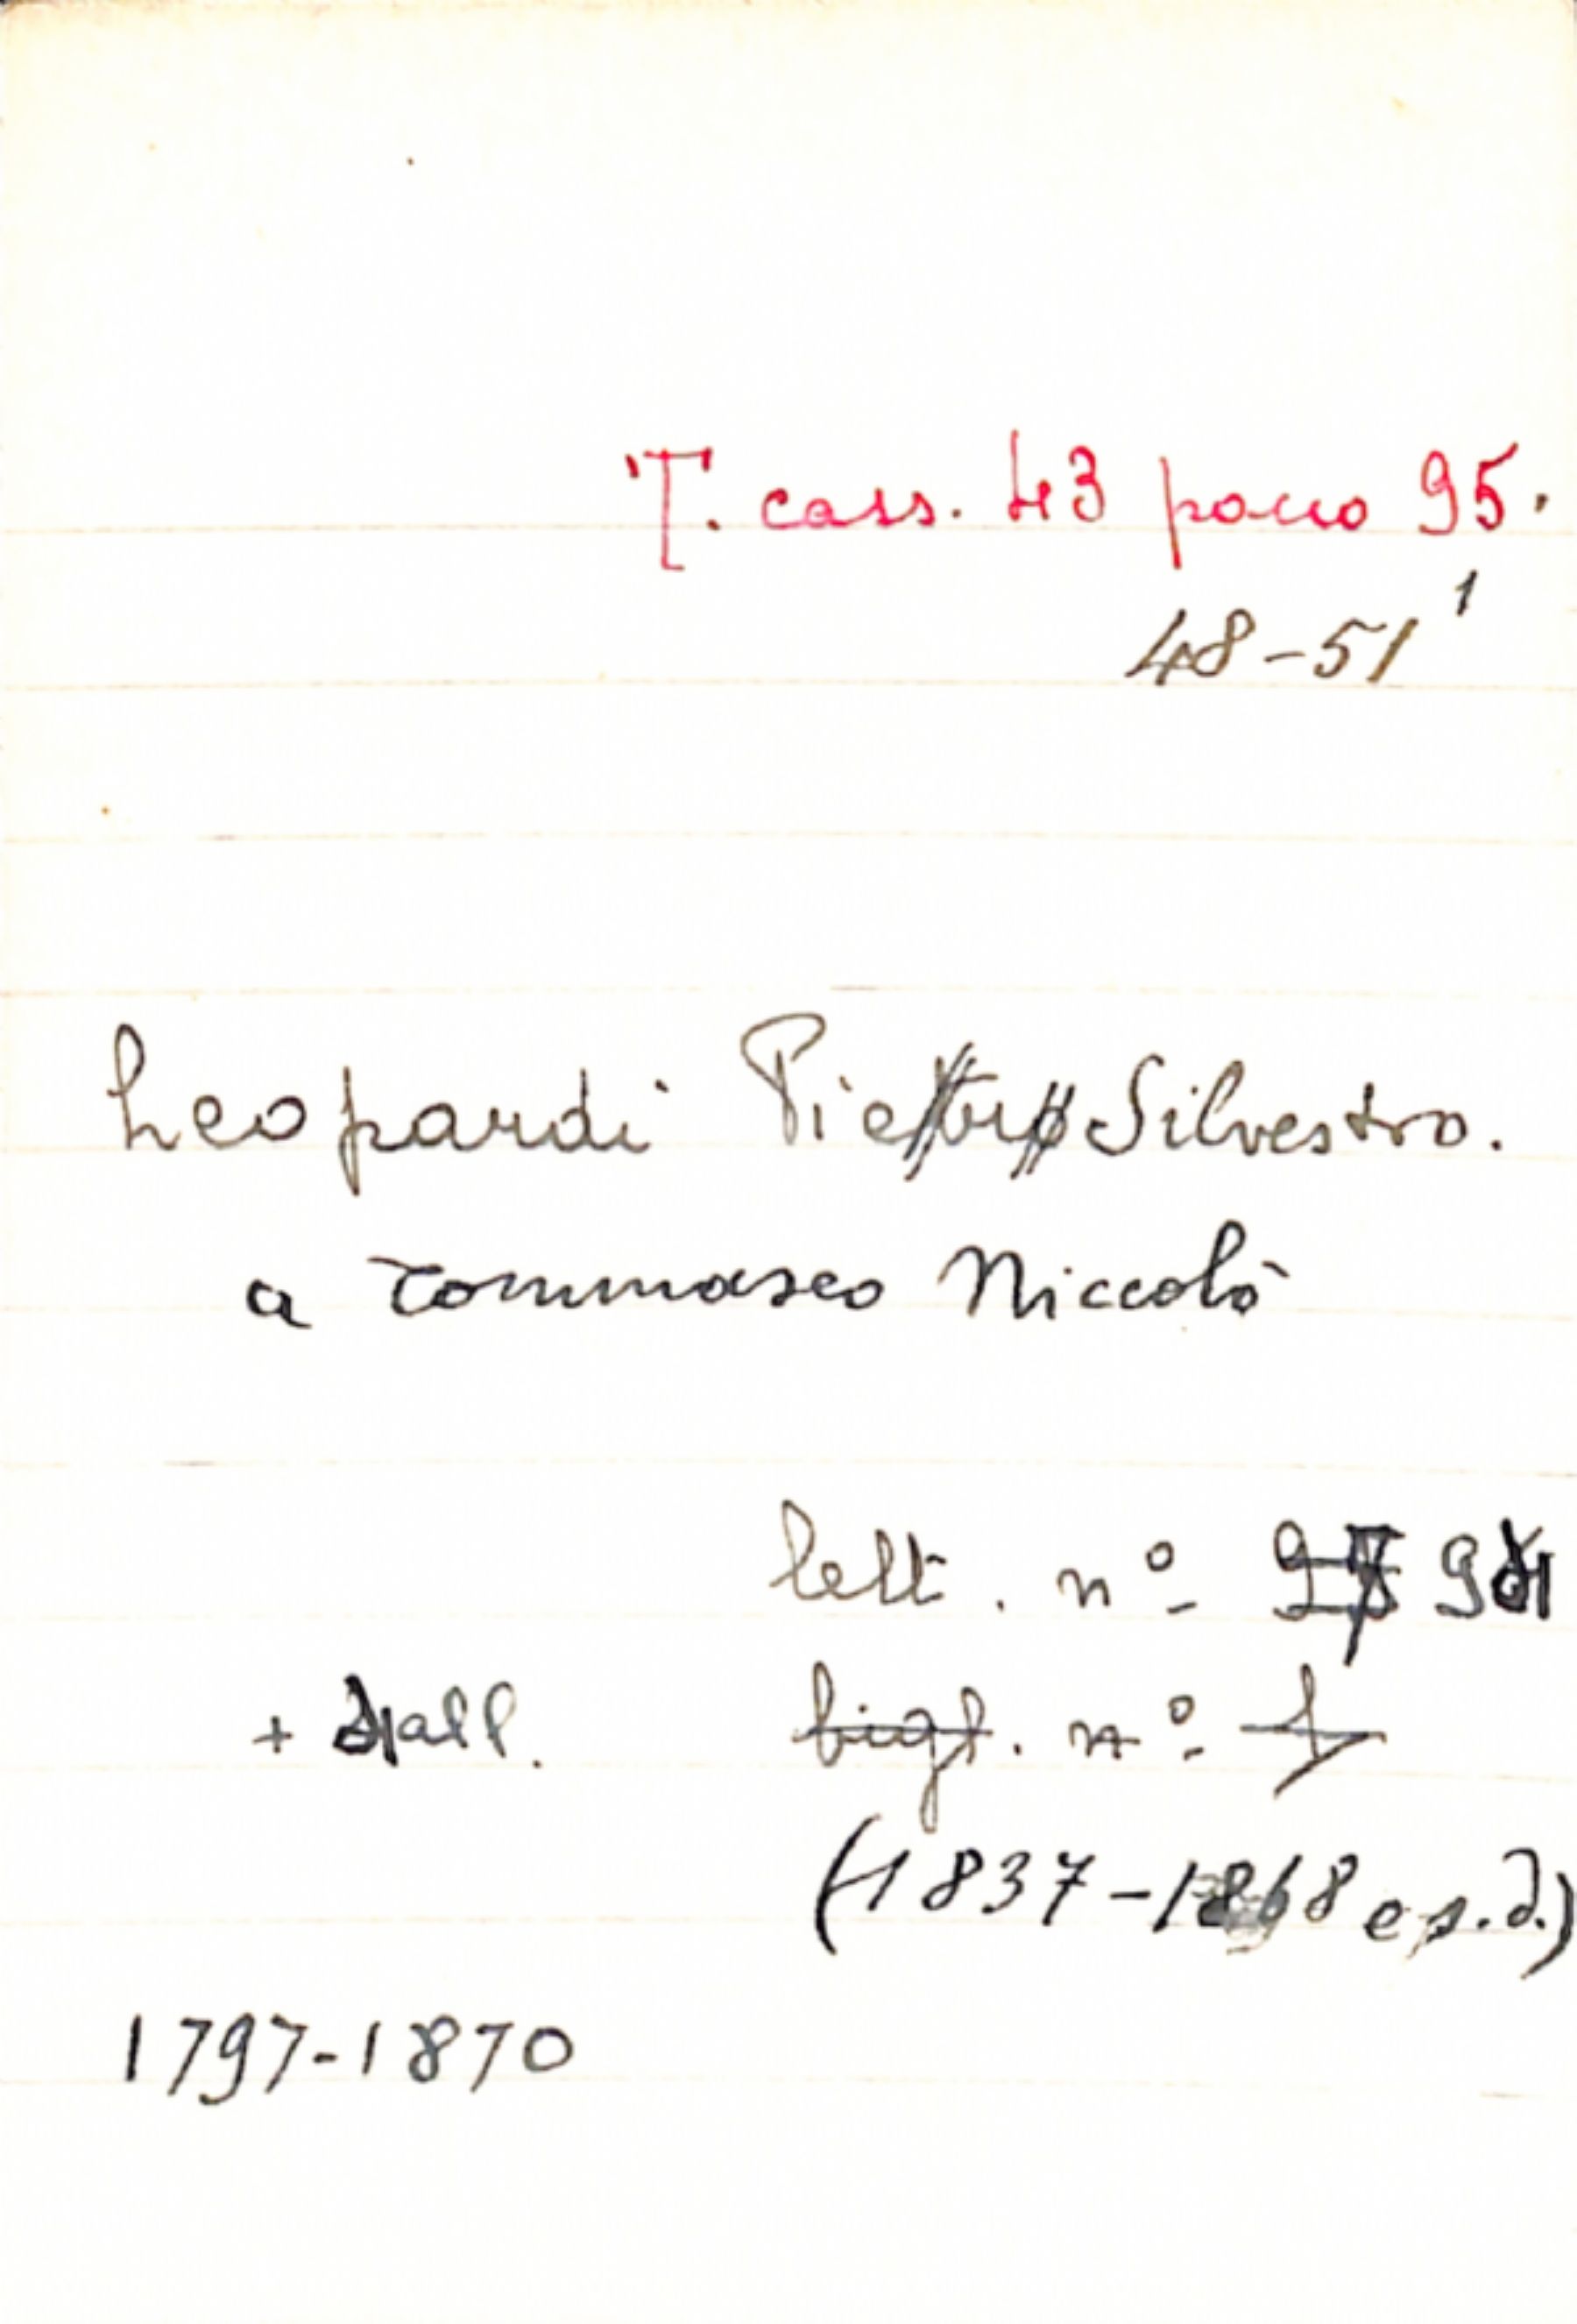 T. cass. 43 pacco 95.
48-51¹
Leopardi Pier Silvestro.
a Tommaseo Niccolò
lett. n°
+ all. bigl. n° 1
(1837-1868 e s.d.)
1797-1870